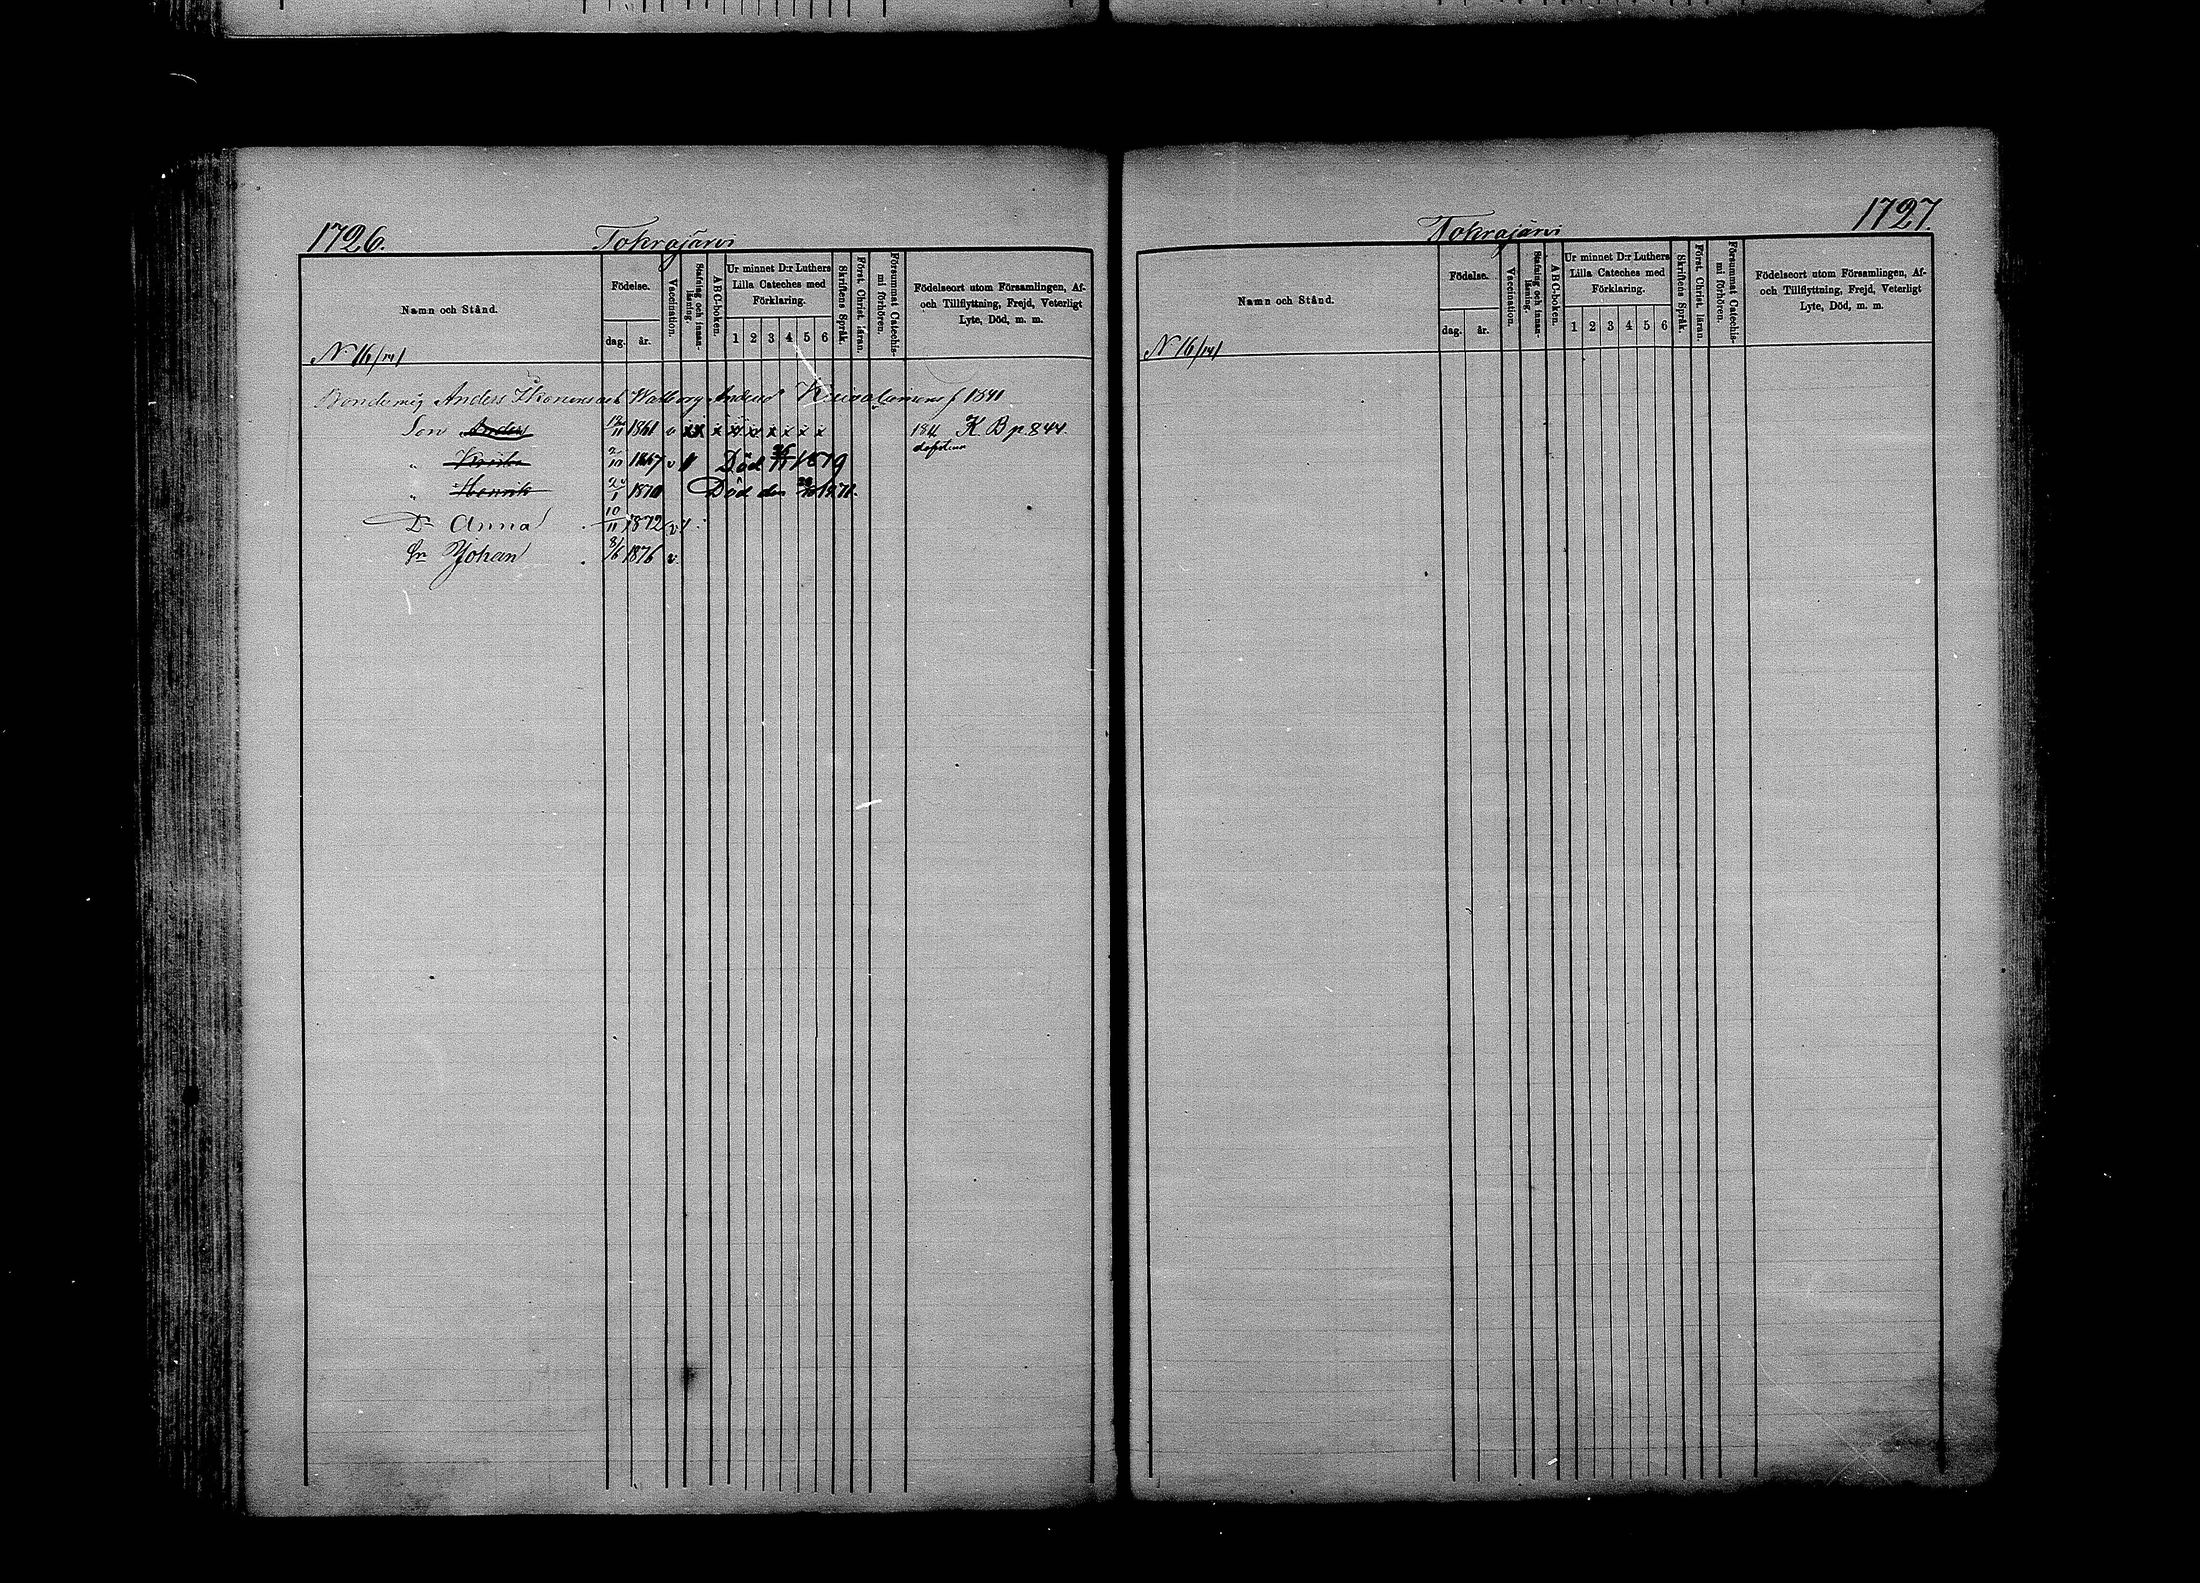 1726.
Tokrajärvi
Namn och Stånd.
Födelse.
dag.
år.
Vaccination.
Stafning och innan-läsning.
ABC-boken.
Ur minnet D:r Luthers
Lilla Cateches med
Förklaring.
1 2 3 4 5 6
Skriftens Språk.
Först. Christ. läran.
Försummat Catechis-
mi förhören.
Födelseort utom Församlingen, Af-
och Tillflyttning, Frejd, Veterligt
Lyte, Död, m. m.
N 16/141
Anders Ikonens och Walborg Anders f 1841
Son Anders 1861 v x x x x x x x K. B p. 844.
" 2/10 1867 v Död 1879
" Henrik 1870 Död den
Dr Anna 10/11 1872 v
Sn Johan 8/6 1876 v.
1727.
Tokrajärvi
Namn och Stånd.
Födelse.
dag.
år.
Vaccination.
Stafning och innan-
läsning.
ABC-boken.
Ur minnet D:r Luthers
Lilla Cateches med
Förklaring.
1 2 3 4 5 6
Skriftens Språk.
Först. Christ. läran.
Försummat Catechis-
mi förhören.
Födelseort utom Församlingen, Af-
och Tillflyttning, Frejd, Veterligt
Lyte, Död, m. m.
N 16/141